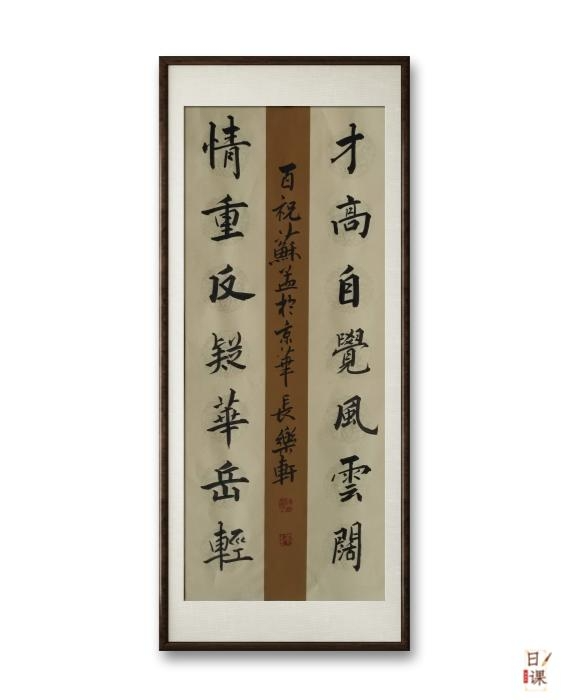 才高自覺風雲闊
情重反疑華岳輕
百祝蘇孟於京華長樂軒
日课